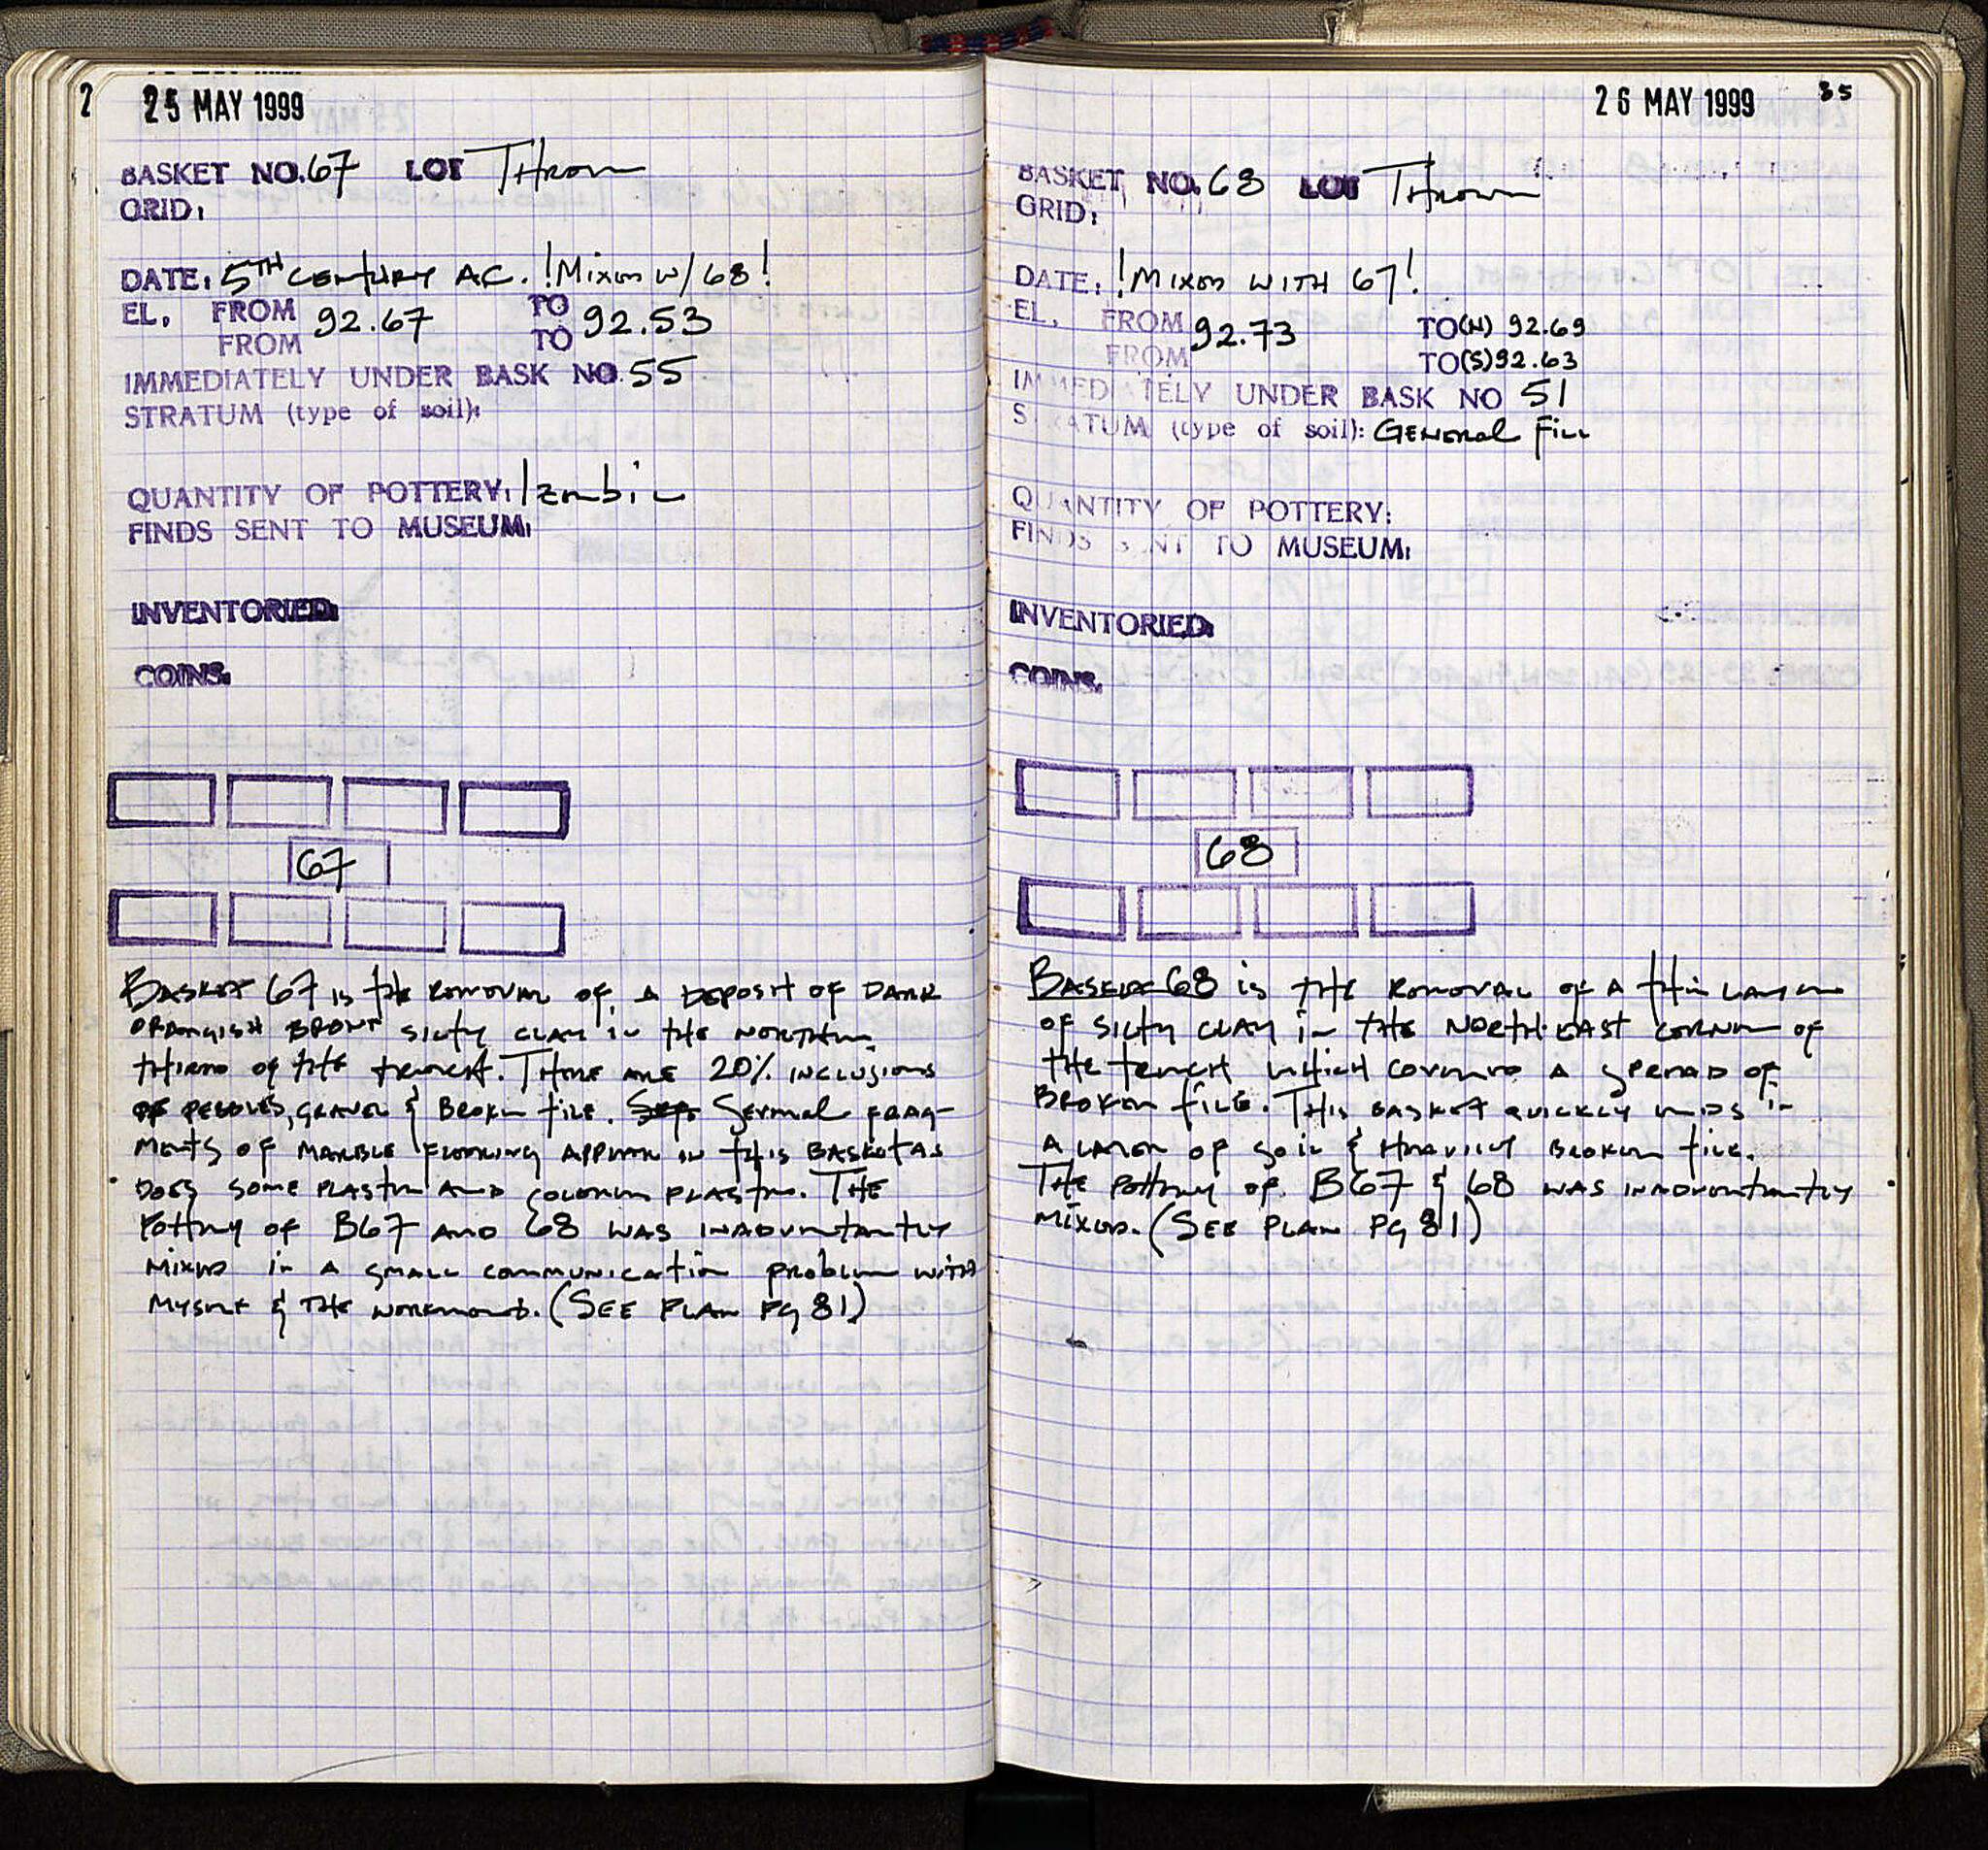 2
25 MAY 1999
BASKET NO. 67 LOT Thrown
GRID:
DATE: 5TH CENTURY AC. !Mixed w/68!
EL. FROM 92.67 TO 92.53
FROM TO
IMMEDIATELY UNDER BASK NO 55
STRATUM (type of soil):
QUANTITY OF POTTERY: 1 zembil
FINDS SENT TO MUSEUM:
INVENTORIED:
COINS.
67
BASKET 67 is the removal of a DEPOSIT of DARK
ORANGISH BROWN silty clay in the NORTHERN
third of the trench. There are 20% inclusions
of pebbles, gravel & Broken tile. Several frag-
ments of marble flooring appear in this BASKET as
does some plaster and colored plaster. The
Pottery of B67 and 68 was inadvertantly
mixed in a small communication problem with
myself & the workmen. (SEE PLAN PG 81)
26 MAY 1999 85
BASKET NO. 68 LOT Thrown
GRID:
DATE: !Mixed WITH 67!
EL. FROM 92.73 TO(N) 92.69
FROM TO(S) 92.63
IMMEDIATELY UNDER BASK NO 51
STRATUM (type of soil): General Fill
QUANTITY OF POTTERY:
FINDS SENT TO MUSEUM:
INVENTORIED:
COINS.
68
BASKET 68 is the removal of a thin layer
of silty clay in the NORTH-EAST corner of
the trench which covered a spread of
Broken tile. This basket quickly ends in
a layer of soil & heavily broken tile.
The Pottery of B67 & 68 was inadvertantly
mixed. (SEE PLAN PG 81)